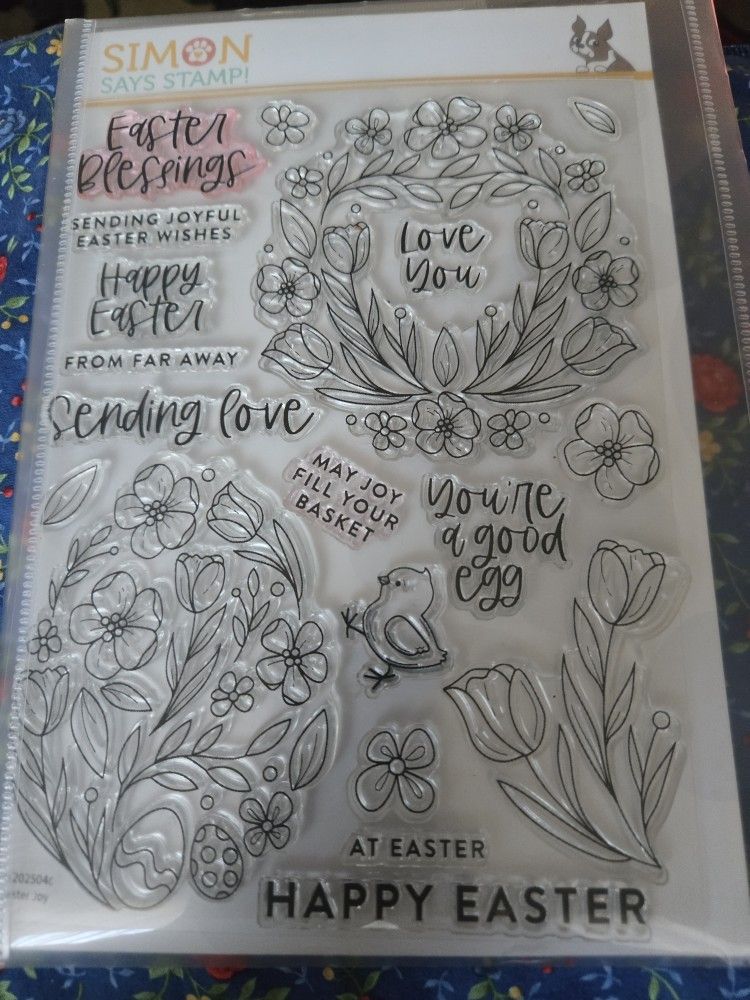 SIMON
SAYS STAMP!
Easter
Blessings
SENDING JOYFUL
EASTER WISHES
Happy
Easter
FROM FAR AWAY
Sending love
Love
You
MAY JOY
FILL YOUR
BASKET
You're
a good
egg
AT EASTER
HAPPY EASTER
202504c
Joy